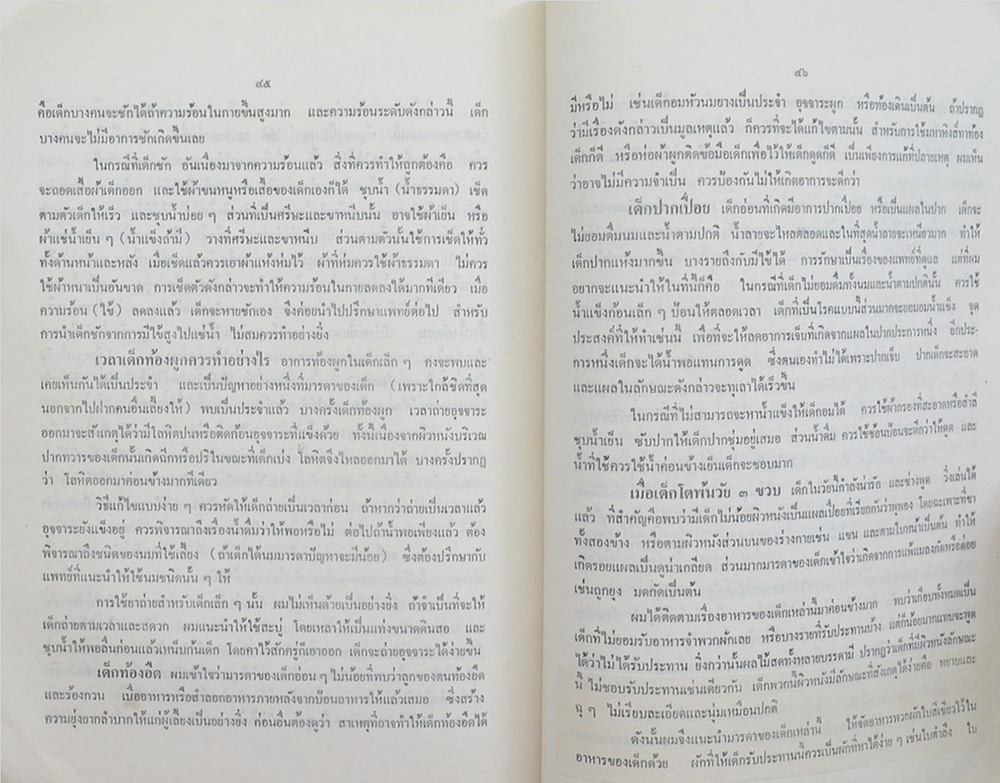 ๔๕
คือเด็กบางคนจะชักได้ถ้าความร้อนในกายขึ้นสูงมาก และความร้อนระดับดังกล่าวนี้ เด็ก
บางคนจะไม่มีอาการชักเกิดขึ้นเลย
ในกรณีที่เด็กชัก อันเนื่องมาจากความร้อนแล้ว สิ่งที่ควรทำให้ถูกต้องคือ ควร
จะถอดเสื้อผ้าเด็กออก และใช้ผ้าขนหนูหรือเสื้อของเด็กเองก็ได้ ชุบน้ำ (น้ำธรรมดา) เช็ด
ตามตัวเด็กให้เร็ว และชุบน้ำบ่อย ๆ ส่วนที่เป็นศรีษะและขาหนีบนั้น อาจใช้ผ้าเย็น หรือ
ผ้าแช่น้ำเย็น ๆ (น้ำแข็งถ้ามี) วางที่ศรีษะและขาหนีบ ส่วนตามตัวนั้นใช้การเช็ดให้ทั่ว
ทั้งด้านหน้าและหลัง เมื่อเช็ดแล้วควรเอาผ้าแห้งห่มไว้ ผ้าที่ห่มควรใช้ผ้าธรรมดา ไม่ควร
ใช้ผ้าหนาเป็นอันขาด การเช็ดตัวดังกล่าวจะทำให้ความร้อนในกายลดลงได้มากทีเดียว เมื่อ
ความร้อน (ไข้) ลดลงแล้ว เด็กจะหายชักเอง จึงค่อยนำไปปรึกษาแพทย์ต่อไป สำหรับ
การนำเด็กชักจากการมีไข้สูงไปแช่น้ำ ไม่สมควรทำอย่างยิ่ง
เวลาเด็กท้องผูกควรทำอย่างไร อาการท้องผูกในเด็กเล็ก ๆ คงจะพบและ
เคยเห็นกันได้เป็นประจำ และเป็นปัญหาอย่างหนึ่งที่มารดาของเด็ก (เพราะใกล้ชิดที่สุด
นอกจากไปฝากคนอื่นเลี้ยงให้) พบเป็นประจำแล้ว บางครั้งเด็กท้องผูก เวลาถ่ายอุจจาระ
ออกมาจะสังเกตุได้ว่ามีโลหิตปนหรือติดก้อนอุจจาระที่แข็งด้วย ทั้งนี้เนื่องจากผิวหนังบริเวณ
ปากทวารของเด็กนั้นเกิดฉีกหรือปริในขณะที่เด็กเบ่ง โลหิตจึงไหลออกมาได้ บางครั้งปรากฏ
ว่า โลหิตออกมาค่อนข้างมากทีเดียว
วิธีแก้ไขแบบง่าย ๆ ควรหัดให้เด็กถ่ายเป็นเวลาก่อน ถ้าหากว่าถ่ายเป็นเวลาแล้ว
อุจจาระยังแข็งอยู่ ควรพิจารณาถึงเรื่องน้ำดื่มว่าให้พอหรือไม่ ต่อไปถ้าน้ำพอเพียงแล้ว ต้อง
พิจารณาถึงชนิดของนมที่ใช้เลี้ยง (ถ้าเด็กได้นมมารดาปัญหาจะมีน้อย) ซึ่งต้องปรึกษากับ
แพทย์ที่แนะนำให้ใช้นมชนิดนั้น ๆ ให้
การใช้ยาถ่ายสำหรับเด็กเล็ก ๆ นั้น ผมไม่เห็นด้วยเป็นอย่างยิ่ง ถ้าจำเป็นที่จะให้
เด็กถ่ายตามเวลาและสดวก ผมแนะนำให้ใช้สะบู่ โดยเหลาให้เป็นแท่งขนาดดินสอ และ
ชุบน้ำให้พอลื่นก่อนแล้วเหน็บก้นเด็ก โดยคาไว้สักครู่ก็เอาออก เด็กจะถ่ายอุจจาระได้ง่ายขึ้น
เด็กท้องอืด ผมเข้าใจว่ามารดาของเด็กอ่อน ๆ ไม่น้อยที่พบว่าลูกของตนท้องอืด
และร้องกวน เบื่ออาหารหรือสำลอกอาหารภายหลังจากป้อนอาหารให้แล้วเสมอ ซึ่งสร้าง
ความยุ่งยากลำบากให้แก่ผู้เลี้ยงเป็นอย่างยิ่ง ก่อนอื่นต้องดูว่า สาเหตุที่อาจทำให้เด็กท้องอืดได้
๔๖
มีหรือไม่ เช่นเด็กอมหัวนมยางเป็นประจำ อุจจาระผูก หรือท้องเดินเป็นต้น ถ้าปรากฏ
ว่ามีเรื่องดังกล่าวเป็นมูลเหตุแล้ว ก็ควรที่จะได้แก้ไขตามนั้น สำหรับการใช้มหาหิงส์ทาท้อง
เด็กก็ดี หรือห่อผ้าผูกติดข้อมือเด็กเพื่อไว้ให้เด็กดูดก็ดี เป็นเพียงการแก้ที่ปลายเหตุ ผมเห็น
ว่าอาจไม่มีความจำเป็น ควรป้องกันไม่ให้เกิดอาการจะดีกว่า
เด็กปากเปื่อย เด็กอ่อนที่เกิดมีอาการปากเปื่อย หรือเป็นแผลในปาก เด็กจะ
ไม่ยอมดื่มนมและน้ำตามปกติ น้ำลายจะไหลตลอดและในที่สุดน้ำลายจะเหนียวมาก ทำให้
เด็กปากแห้งมากขึ้น บางรายถึงกับมีไข้ได้ การรักษาเป็นเรื่องของแพทย์ที่ดูแล แต่ที่ผม
อยากจะแนะนำให้ในที่นี้ก็คือ ในกรณีที่เด็กไม่ยอมดื่มทั้งนมและน้ำตามปกตินั้น ควรใช้
น้ำแข็งก้อนเล็ก ๆ ป้อนให้ตลอดเวลา เด็กที่เป็นโรคแบบนี้ส่วนมากจะยอมอมน้ำแข็ง จุด
ประสงค์ที่ให้ทำเช่นนี้ เพื่อที่จะให้ลดอาการเจ็บที่เกิดจากแผลในปากประการหนึ่ง อีกประ-
การหนึ่งเด็กจะได้น้ำพอแทนการดูด ซึ่งตนเองทำไม่ได้เพราะปากเจ็บ ปากเด็กจะสะอาด
และแผลในลักษณะดังกล่าวจะทุเลาได้เร็วขึ้น
ในกรณีที่ไม่สามารถจะหาน้ำแข็งให้เด็กอมได้ ควรใช้ผ้ากรองที่สะอาดหรือสำลี
ชุบน้ำเย็น ซับปากให้เด็กปากชุ่มอยู่เสมอ ส่วนน้ำดื่ม ควรใช้ช้อนป้อนจะดีกว่าให้ดูด และ
น้ำที่ใช้ควรใช้น้ำค่อนข้างเย็นเด็กจะชอบมาก
เมื่อเด็กโตพ้นวัย ๓ ขวบ เด็กในวัยนี้กำลังน่ารัก และช่างพูด วิ่งเล่นได้
แล้ว ที่สำคัญคือพบว่ามีเด็กไม่น้อยผิวหนังเป็นแผลเปื่อยที่เรียกกันว่าพุพอง โดยเฉพาะที่ขา
ทั้งสองข้าง หรือตามผิวหนังส่วนบนของร่างกายเช่น แขน และตามใบหน้าเป็นต้น ทำให้
เกิดรอยแผลเป็นดูน่าเกลียด ส่วนมากมารดาของเด็กเข้าใจว่าเกิดจากการแพ้แมลงกัดหรือต่อย
เช่นถูกยุง มดกัดเป็นต้น
ผมได้ติดตามเรื่องอาหารของเด็กเหล่านี้มาค่อนข้างมาก พบว่าเกือบทั้งหมดเป็น
เด็กที่ไม่ยอมรับอาหารจำพวกผักเลย หรือบางรายที่รับประทานบ้าง แต่ก็น้อยมากแทบจะพูด
ได้ว่าไม่ได้รับประทาน ยิ่งกว่านั้นผลไม้สดทั้งหลายบรรดามี ปรากฏว่าเด็กที่มีผิวหนังลักษณะ
นี้ ไม่ชอบรับประทานเช่นเดียวกัน เด็กพวกนี้ผิวหนังมีลักษณะที่สังเกตุได้ง่ายคือ หยาบและ
ฉุ ๆ ไม่เรียบละเอียดและนุ่มเหมือนปกติ
ดังนั้นผมจึงแนะนำมารดาของเด็กเหล่านี้ ให้จัดอาหารพวกผักใบสีเขียวไว้ใน
อาหารของเด็กด้วย ผักที่ให้เด็กรับประทานนี้ควรเป็นผักที่หาได้ง่าย ๆ เช่นใบตำลึง ใบ